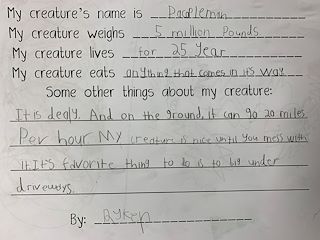 My creature's name is Dacpleman
My creature weighs 5 million Pounds
My creature lives for 25 Year
My creature eats anything that comes in it's way
Some other things about my creature:
It is dealy. And on the ground, it can go 20 miles
Per hour My creature is nice until you mess with
it. It's favorite thing to do is to dig under
driveways.
By: